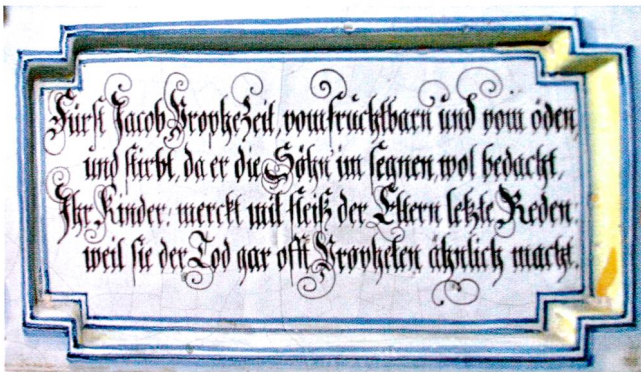 Fürst Jacob Propheꜩeit, vom fruchtbarn und vom öden,
und stirbt, da er die Söhn im segnen, wol bedacht,
Ihr Kinder: merckt mit fleiß der Eltern letzte Reden:
weil sie der Tod gar offt Propheten ähnlich macht.